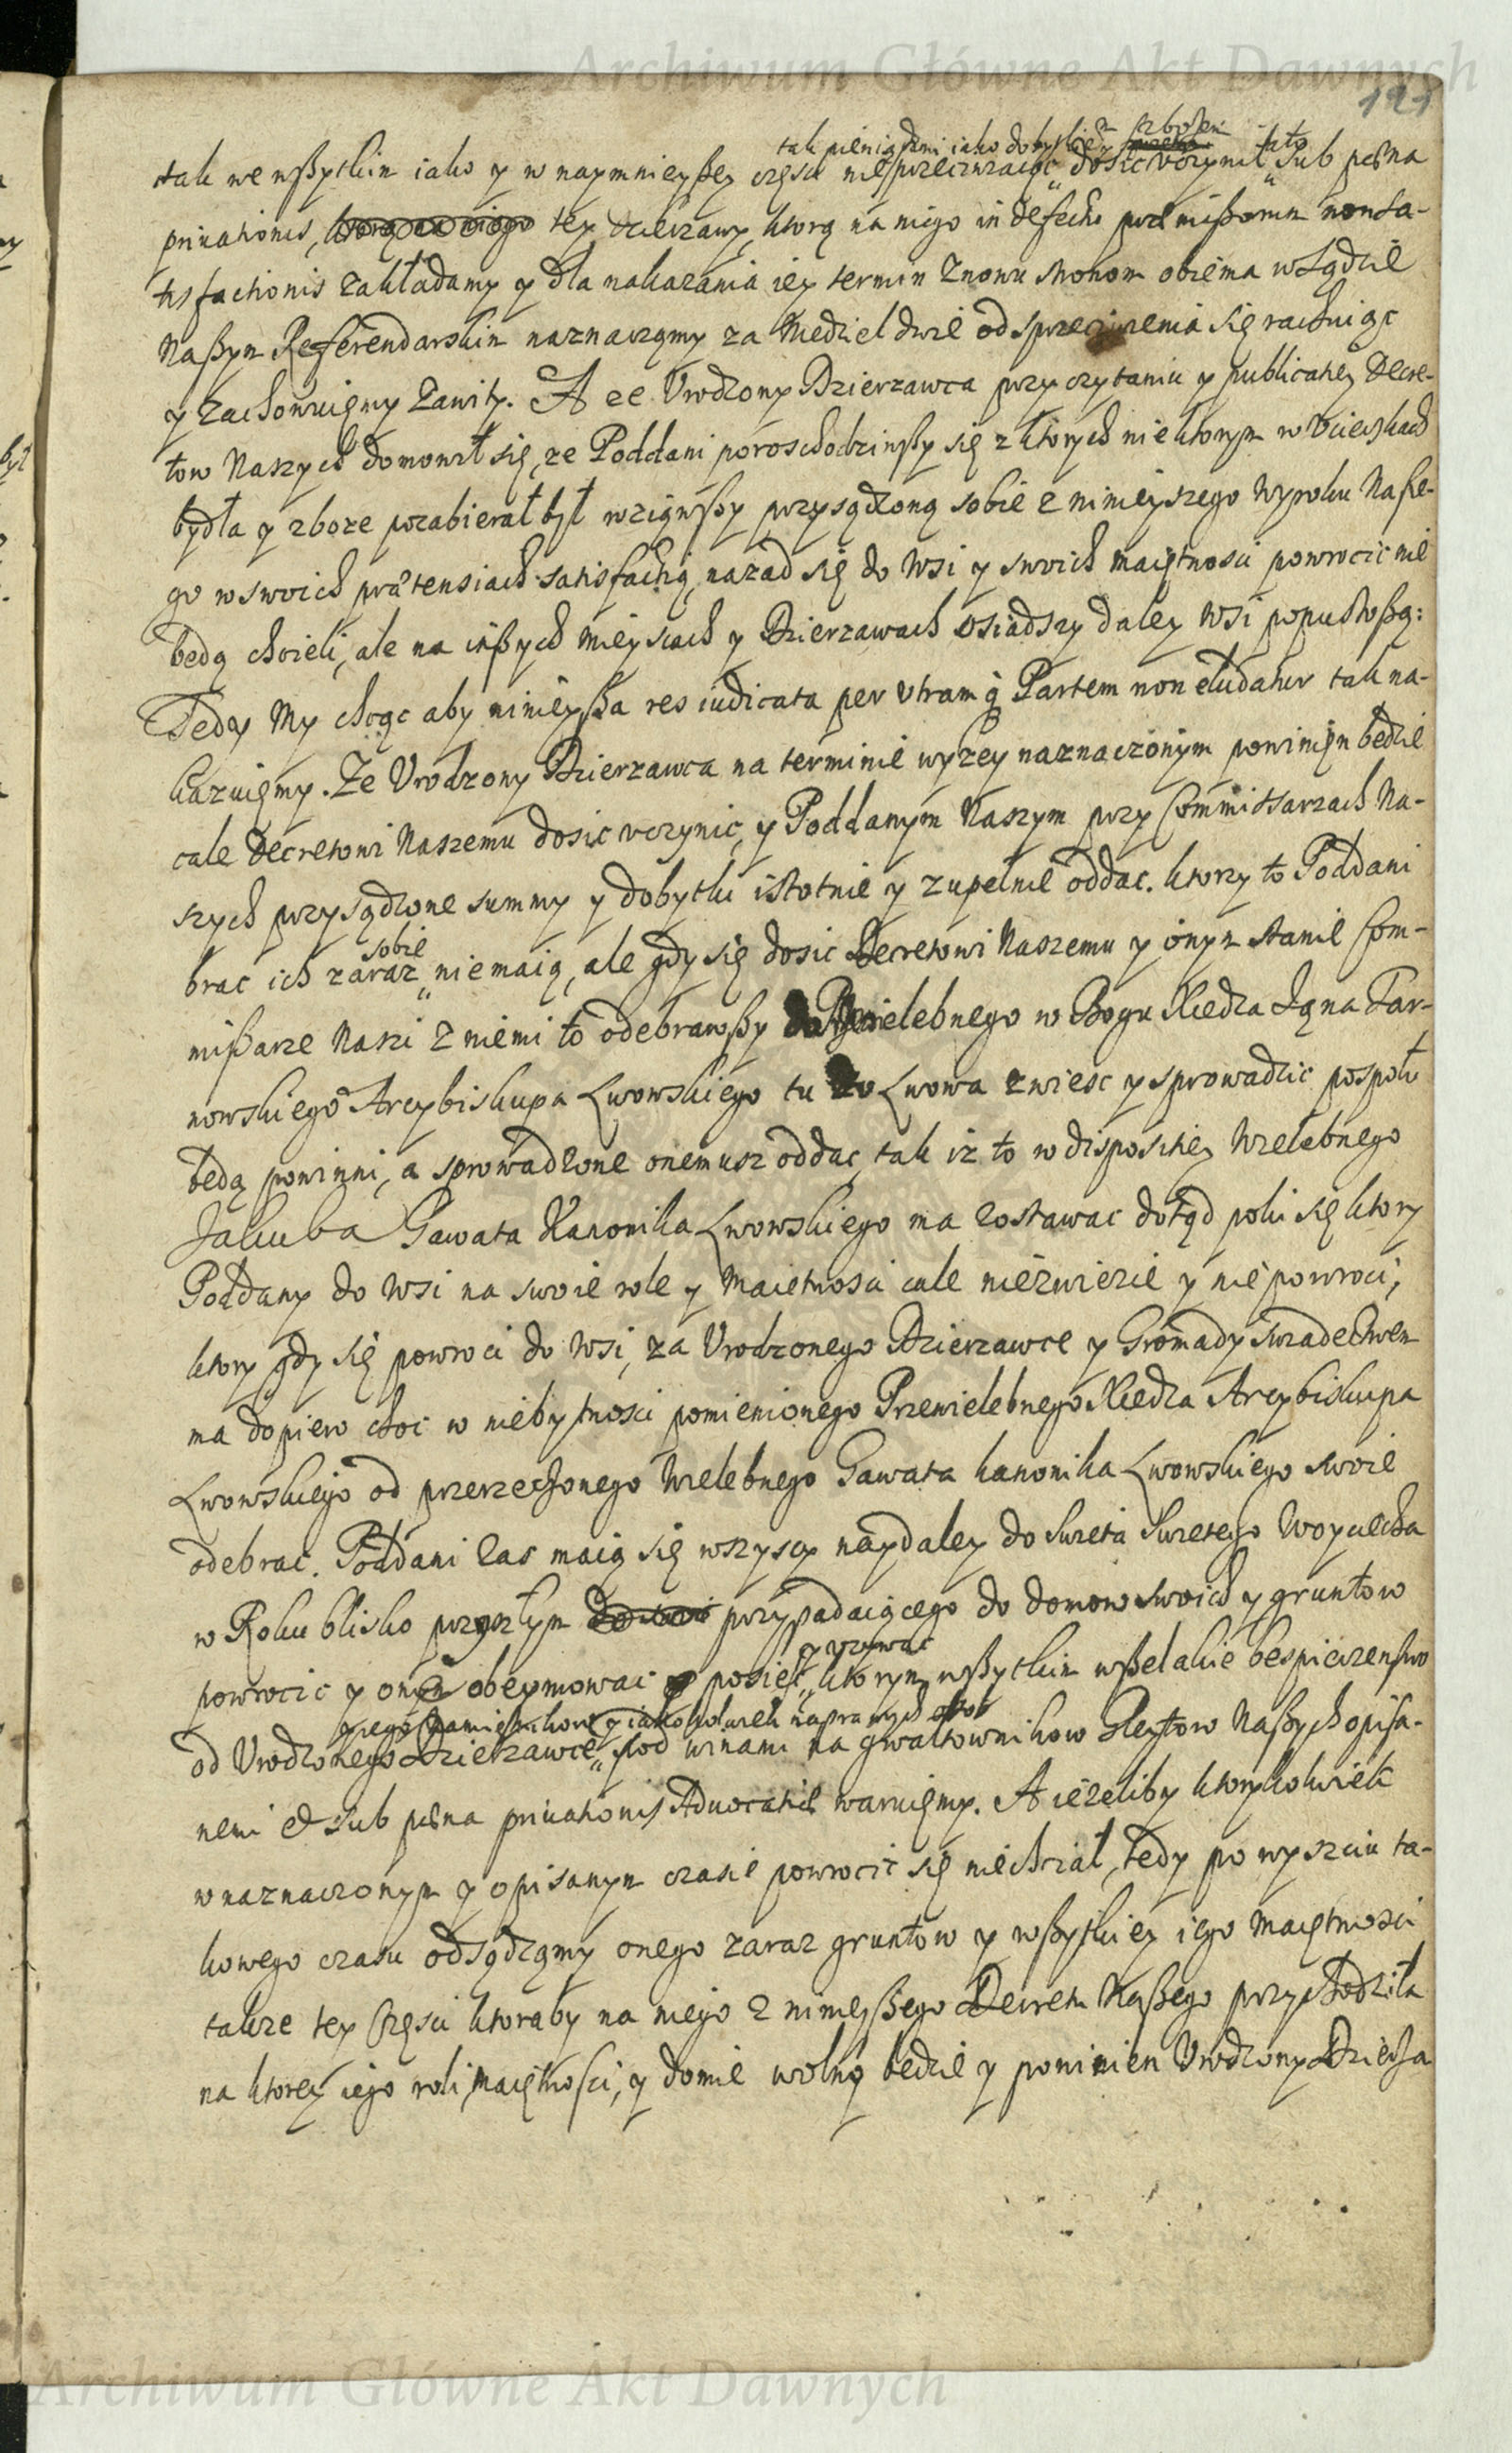 Archiwum Główne Akt Dawnych
121
tak pieniądzmi iako dobytkiem zbożem
tak we wßytkim iako y w naymnieyßey częsci nie sprzeciwiaiąc dosic vczynił, sub pæna
priuationis, ktorą na niego tey dzierzawy, ktorą na niego in defectu præmißorum nonsa-
tisfactionis zakładamy y dla nakazania iey termin znowu stronom obiema w Sądzie
Naßym Referendarskim naznaczamy za Niedziel dwie od sprzeciwienia się rachuiąc
y zachowuięmy Zawity. A ze Vrodzony Dzierzawca przy czytaniu y publicatiey Decre-
tow Naszych domowił się, ze Poddani poroschodziwßy się z ktorych niektorym w Vcieczkach
bydła y zboze pozabierał był wziąwßy przysądzoną sobie z ninieyszego Wyroku Naße-
go w swoich prætensiach satisfactią, nazad się do Wsi y swoich maiętnosci powrocic nie
będą chcieli, ale na inßych mieyscach y Dzierzawach osiadszy daley Wsi popustoßą:
Tedy My chcąc aby ninieyßa res iudicata per vtramq Partem non eludatur tak na-
kazuięmy. Ze Vrodzony Dzierzawca na terminie wyzey naznaczonym powinięn będzie
cale Decretowi Naszemu dosic vczynic, y Poddanym Naszym przy Commissarzach Na-
szych przysądzone summy y dobytki istotnie y zupełnie oddac. ktorzy to Poddani
sobie
brac ich zaraz niemaią, ale gdy się dosic Decretowi Naszemu y onym stanie Com-
mißarze Naszi z niemi to odebrawßy do Przewielebnego w Bogu Xiedza Iana Tar-
nowskiego Arcybiskupa Lwowskiego tu do Lwowa zwiesc y sprowadzic pospołu
będą powinni, a sprowadzone onemusz oddac, tak iz to w dispositiey Wielebnego
Jakuba Gawata Kanonika Lwowskiego ma zostawac dotąd poki się ktory
Poddany do Wsi na swoie role y Maietnosci cale niezwiezie y nie powroci,
ktory gdy się powroci do Wsi, za Vrodzonego Dzierzawce y Gromady swiadectwem
ma dopiero choc w niebytnosci pomienionego Przewielebnego Xiedza Arcybiskupa
Lwowskiego od przerzeczonego Wielebnego Gawata kanonika Lwowskiego swoie
odebrac. Poddani zas maią się wszyscy naydaley do Swieta Swietego Woyciecha
w Roku blisko przyszłym przypadaiącego do domow swoich y gruntow
y vzywac
powrocic y onym obeymowac posieść, ktorym wßytkim wßelakie bespieczenstwo
y iego Namiesnikow y iakokolwiek naprawnych osob
od Vrodzonego Dzierzawce, pod winami na gwałtownikow Gleytow Naßych opisa-
nemi et sub pæna priuationis Aduocatiæ waruięmy. A iezeliby ktorykolwiek
w naznaczonym y opisanym czasie powrocic się niechciał, tedy po wysciu ta-
kowego czasu odsądzamy onego zaraz gruntow y wßytkiey iego Maiętnosci
takze tey Częsci ktoraby na niego z ninieyßego Decretu Naßego przychodziła
na ktorey iego roli, maiętnosci, y domie wolny bedzie y powinien Vrodzony Dzierza
Archiwum Główne Akt Dawnych